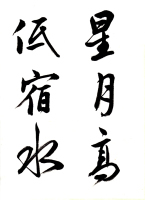 星月高
低宿水